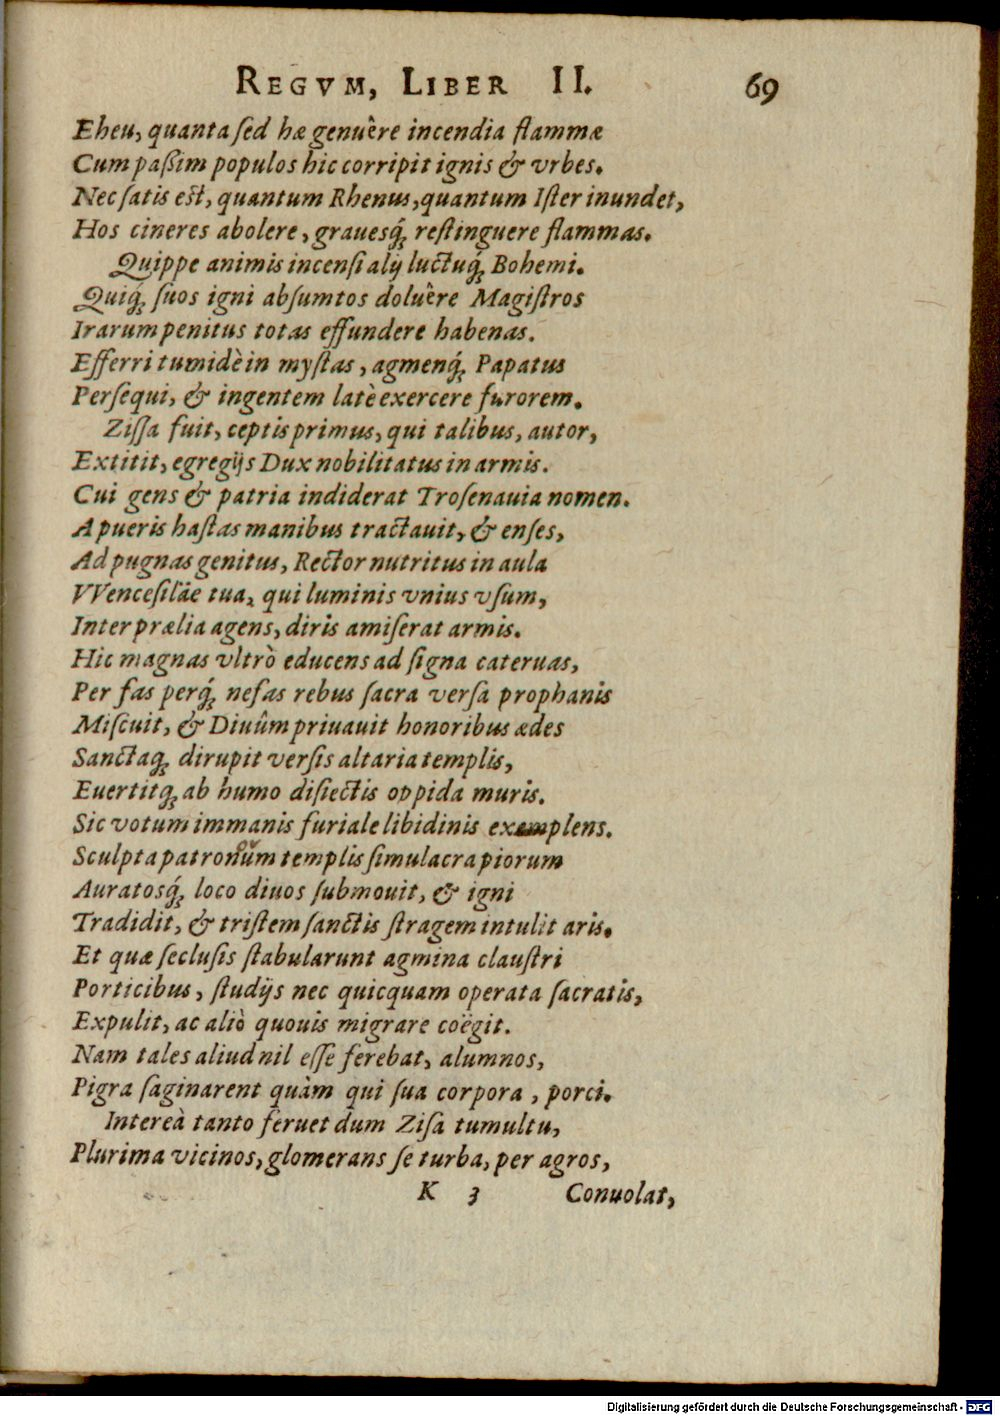 REGVM, LIBER II. 69
Eheu, quanta ſed hæ genuêre incendia flammæ
Cum paßim populos hic corripit ignis & vrbes.
Nec ſatis eſt, quantum Rhenus, quantum Iſter inundet,
Hos cineres abolere, grauesq́; reſtinguere flammas.
Quippe animis incenſi alij luctuq́; Bohemi.
Quiq́; ſuos igni abſumtos doluêre Magiſtros
Irarum penitus totas effundere habenas.
Efferri tumidè in myſtas, agmenq́; Papatus
Perſequi, & ingentem latè exercere furorem.
Ziſſa fuit, ceptis primus, qui talibus, autor,
Extitit, egregijs Dux nobilitatus in armis.
Cui gens & patria indiderat Troſenauia nomen.
A pueris haſtas manibus tractauit, & enſes,
Ad pugnas genitus, Rector nutritus in aula
VVenceſiläe tua, qui luminis vnius vſum,
Inter prælia agens, diris amiſerat armis.
Hic magnas vltrò educens ad ſigna cateruas,
Per fas perq́; nefas rebus ſacra verſa prophanis
Miſcuit, & Diuûm priuauit honoribus ædes
Sanctaq; dirupit verſis altaria templis,
Euertitq; ab humo diſiectis oppida muris.
Sic votum immanis furiale libidinis exemplens.
Sculpta patronûm templis ſimulacra piorum
Auratosq́; loco diuos ſubmouit, & igni
Tradidit, & triſtem ſanctis ſtragem intulit aris.
Et quæ ſecluſis ſtabularunt agmina clauſtri
Porticibus, ſtudijs nec quicquam operata ſacratis,
Expulit, ac aliò quouis migrare coëgit.
Nam tales aliud nil eſſe ferebat, alumnos,
Pigra ſaginarent quàm qui ſua corpora, porci.
Intereà tanto feruet dum Ziſa tumultu,
Plurima vicinos, glomerans ſe turba, per agros,
K 3 Conuolat,
Digitalisierung gefördert durch die Deutsche Forschungsgemeinschaft - DFG